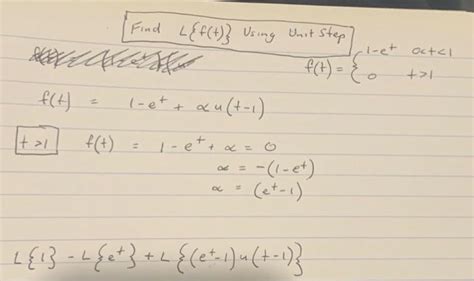 Find L{f(t)} Using Unit Step
f(t) = { 1-e^t 0<t<1
0 t>1
f(t) = 1-e^t + αu(t-1)
t>1 f(t) = 1-e^t + α = 0
α = -(1-e^t)
α = (e^t-1)
L{1} - L{e^t} + L{(e^t-1)u(t-1)}